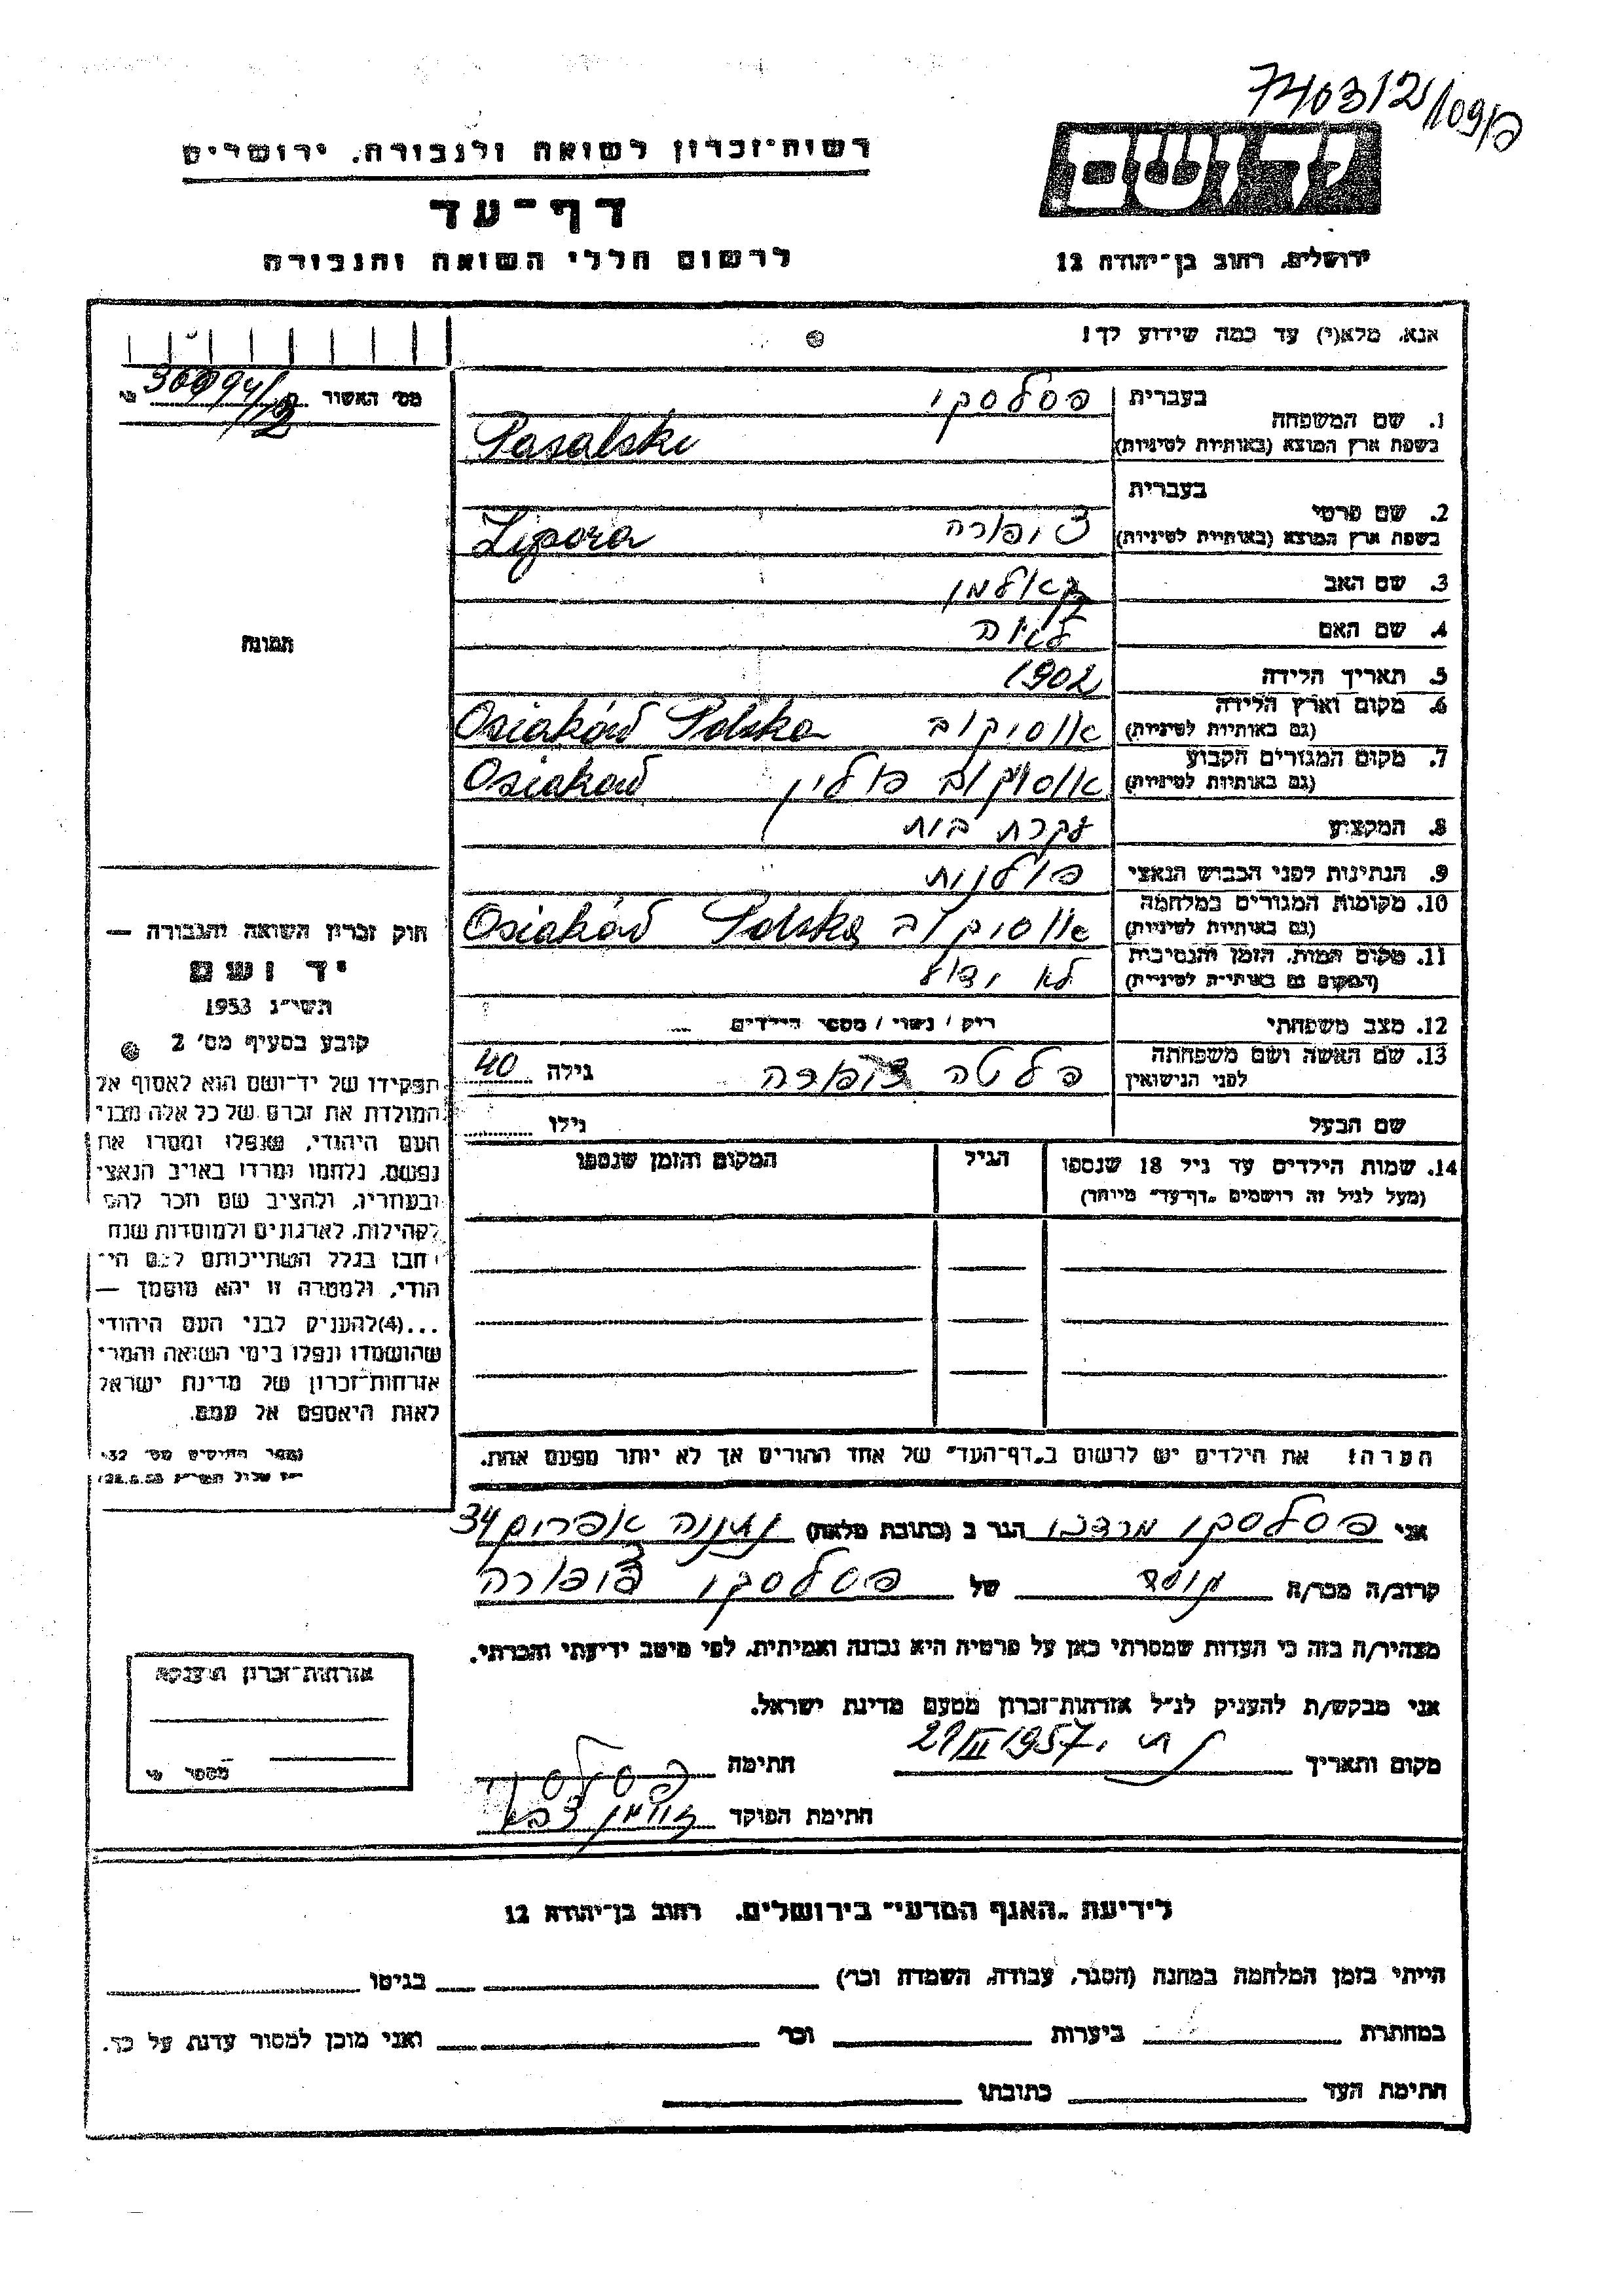 740312/109/פ
רשות-זכרון לשואה ולגבורה, ירושלים
דף-עד
לרשום חללי השואה והגבורה
יד ושם
ירושלים, רחוב בן-יהודה 12
אנא, מלא(י) עד כמה שידוע לך!
מס' האשור
1. שם המשפחה בעברית פסלסקי
בשפת ארץ המוצא (באותיות לטיניות) Pasalski
2. שם פרטי בעברית צופורה
בשפת ארץ המוצא (באותיות לטיניות) Zipora
3. שם האב קאלמן
4. שם האם
5. תאריך הלידה 1902
6. מקום וארץ הלידה (גם באותיות לטיניות) אוסיקוב Osiaków Polska
7. מקום המגורים הקבוע (גם באותיות לטיניות) אוסיקוב פולין Osiaków
8. המקצוע עקרת בית
9. הנתינות לפני הכבוש הנאצי פולנית
10. מקומות המגורים במלחמה (גם באותיות לטיניות) אוסיקוב Osiaków Polska
11. מקום המות, הזמן והנסיבות (המקום גם באותיות לטיניות) לא ידוע
12. מצב משפחתי רוק / נשוי / מספר הילדים
13. שם האשה ושם משפחתה לפני הנישואין פלטה צופורה גילה 40
שם הבעל גילו
14. שמות הילדים עד גיל 18 שנספו (מעל לגיל זה רושמים "דף-עד" מיוחד) הגיל המקום והזמן שנספו
הערה: את הילדים יש לרשום ב"דף-העד" של אחד ההורים אך לא יותר מפעם אחת.
תמונה
חוק זכרון השואה והגבורה —
יד ושם
תשי"ג 1953
קובע בסעיף מס' 2
תפקידו של יד-ושם הוא לאסוף אל
המולדת את זכרם של כל אלה מבני
העם היהודי, שנפלו ומסרו את
נפשם, נלחמו ומרדו באויב הנאצי
ובעוזריו, ולהציב שם וזכר להם
לקהילות, לארגונים ולמוסדות שנח
רבו בגלל השתייכותם לעם הי-
הודי, ולמטרה זו יהא מוסמך —
...(4)להעניק לבני העם היהודי
שהושמדו ונפלו בימי השואה והמרי
אזרחות-זכרון של מדינת ישראל
לאות היאספם אל עמם.
ספר החוקים מס' 132
אני פסלסקי מרדכי הגר ב (כתובת מלאה) נתניה אפרים 34
קרוב/ה מכר/ה של פסלסקי צופורה
מצהיר/ה בזה כי העדות שמסרתי כאן על פרטיה היא נכונה ואמיתית, לפי מיטב ידיעתי והכרתי.
אני מבקש/ת להעניק לנ"ל אזרחות-זכרון מטעם מדינת ישראל.
מקום ותאריך 1957 חתימה פסלסקי
חתימת הפוקד
אזרחות-זכרון הוענקה
מספר
לידיעת "האגף המדעי" בירושלים, רחוב בן-יהודה 12
הייתי בזמן המלחמה במחנה (הסגר, עבודה, השמדה וכו') בגיטו
במחתרת ביערות וכו' ואני מוכן למסור עדות על כך.
חתימת העד כתובתו